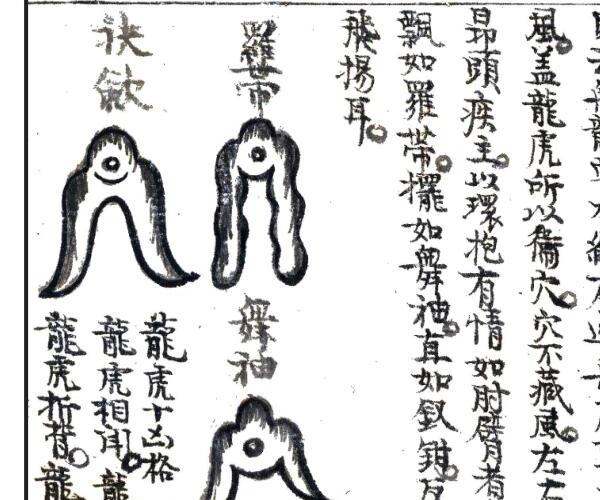 風。盖龍虎所以衛穴。穴不藏風。左右
昂頭疾主。以環抱有情如肘臂者
飄如羅帶。擺如舞袖。直如釵鉗。反
飛揚耳。
羅帶
舞袖
龍虎十凶格
龍虎相鬪。龍
龍虎折背。龍